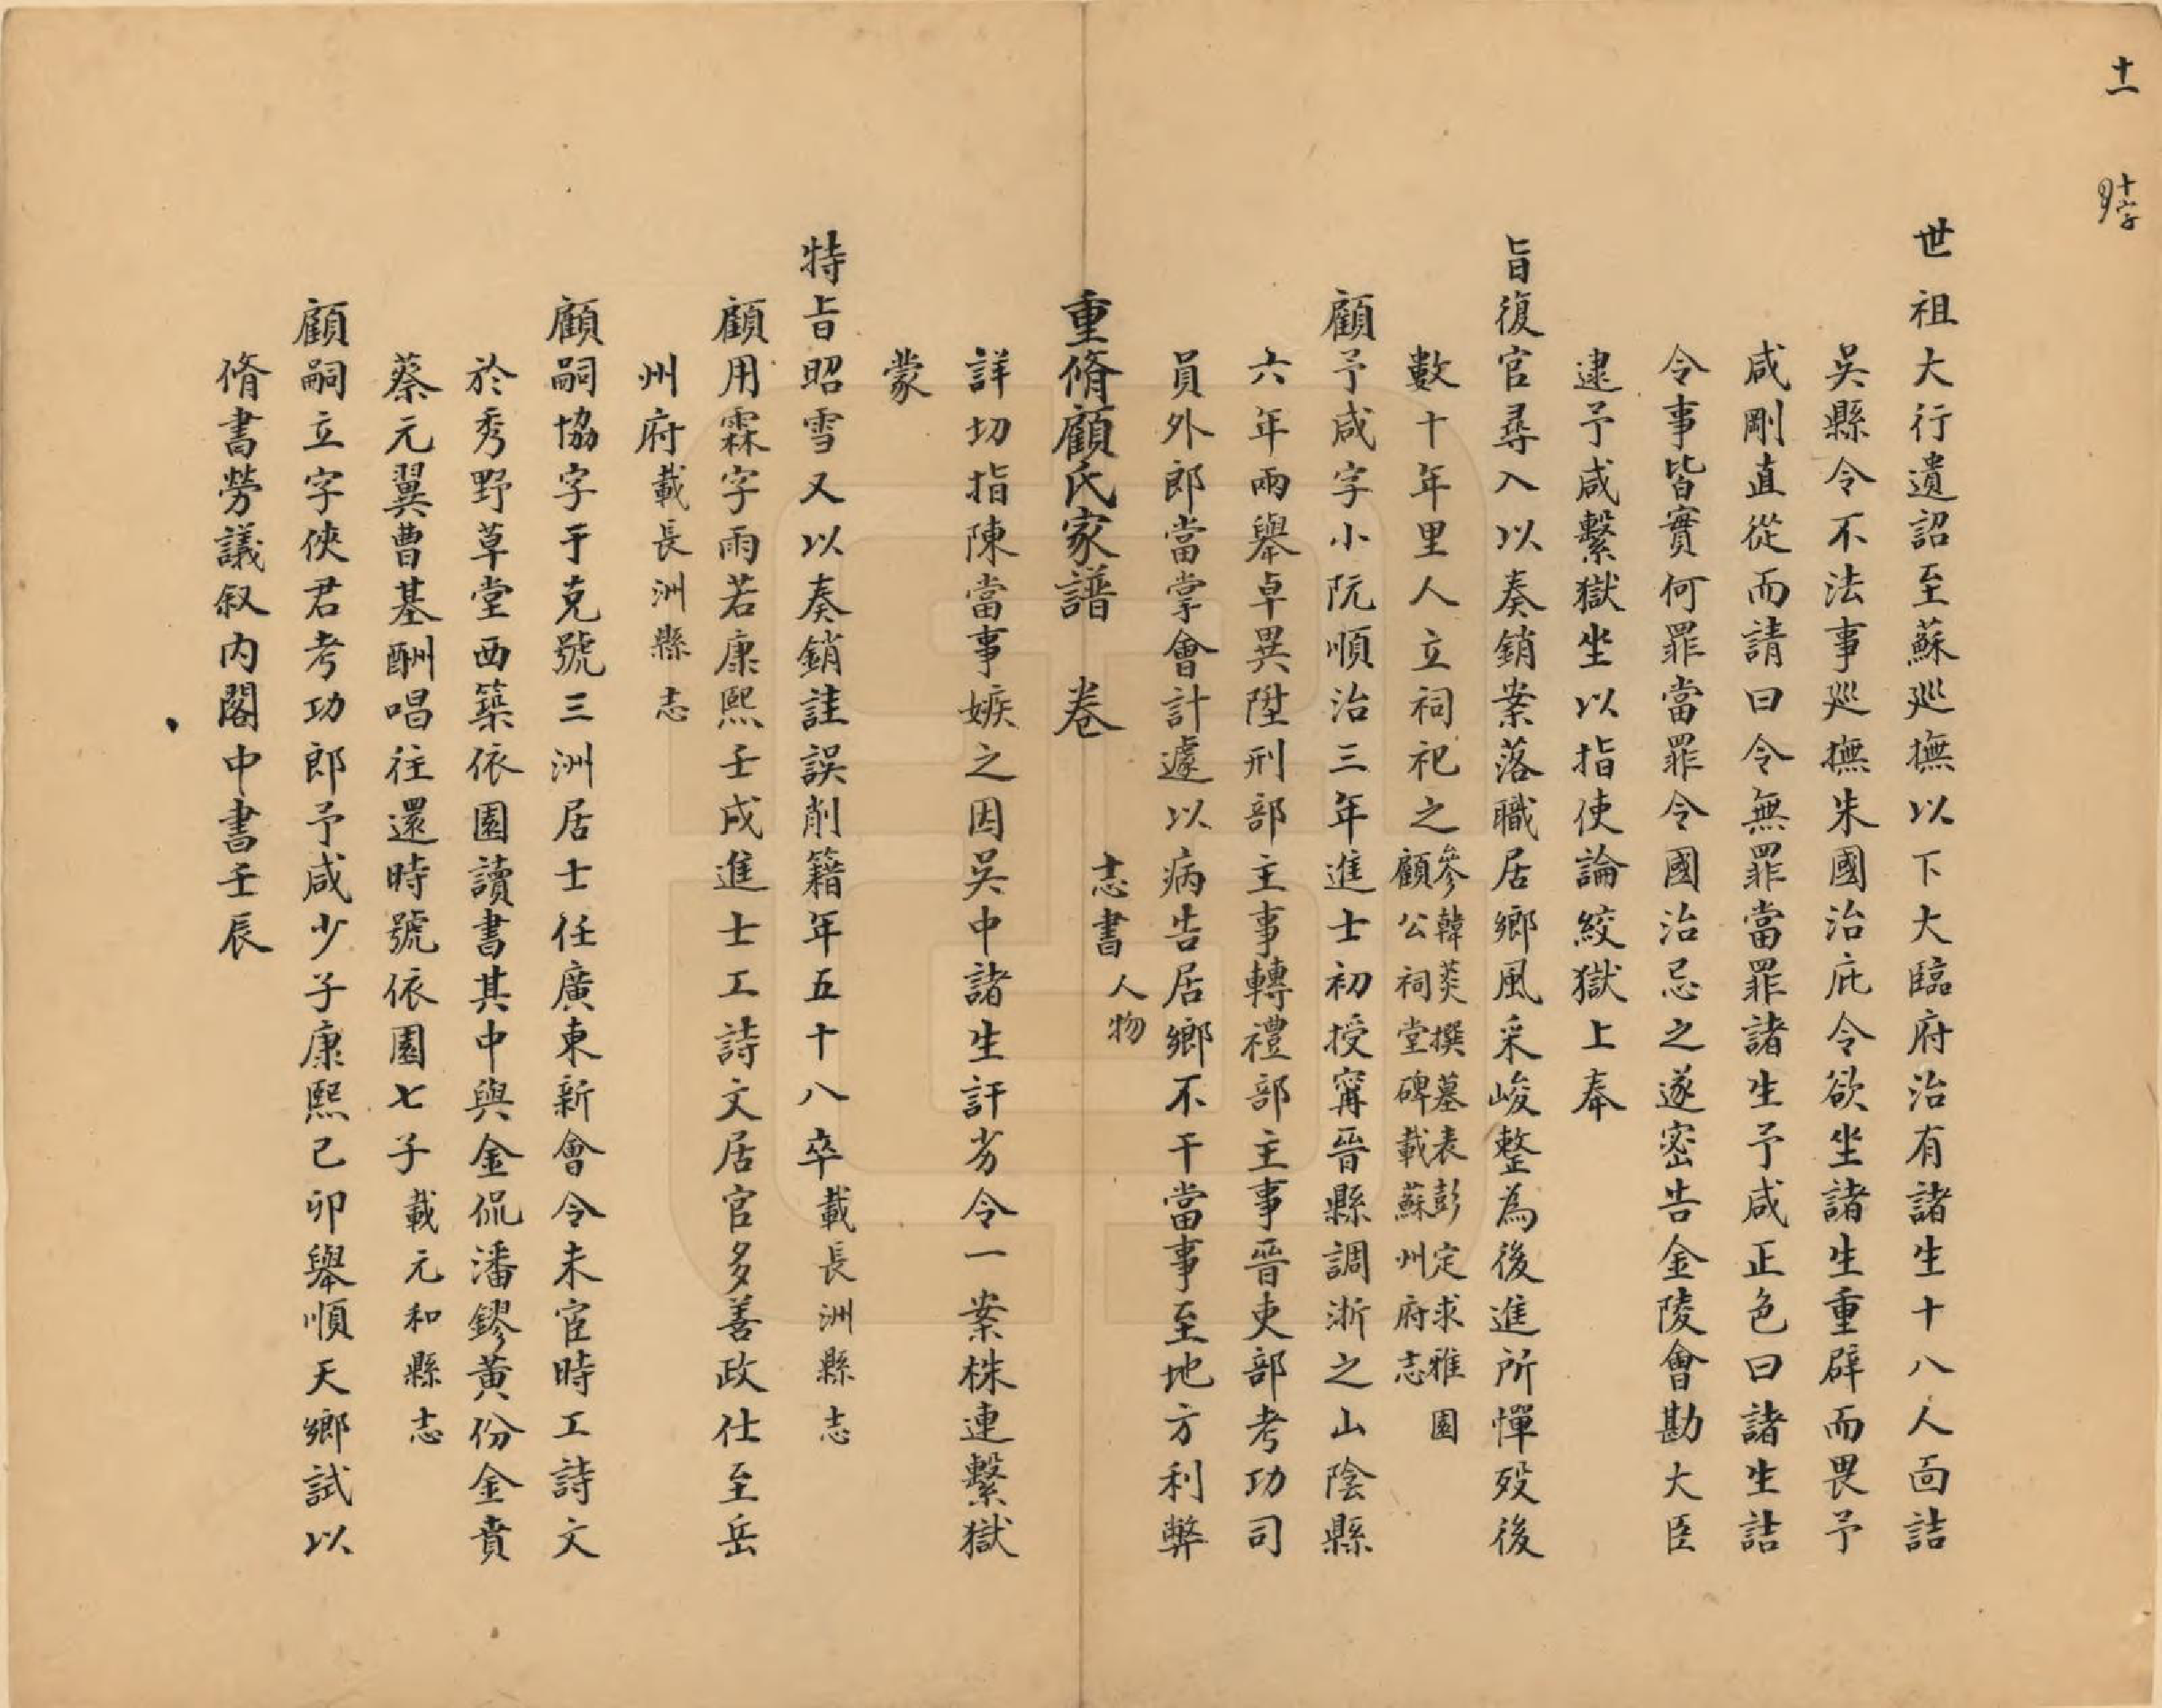 十一
世祖大行遺詔至蘇廵撫以下大臨府治有諸生十八人面詰
吳縣令不法事廵撫朱國治庇令欲坐諸生重辟而畏予
咸剛直從而請曰令無罪當罪諸生予咸正色曰諸生詰
令事皆實何罪當罪令國治忌之遂密告金陵會勘大臣
逮予咸繫獄坐以指使論絞獄上奉
旨復官尋入以奏銷案落職居鄉風采峻整為後進所憚歿後
數十年里人立祠祀之參韓菼撰墓表彭定求雅園
顧公祠堂碑載蘇州府志
顧予咸字小阮順治三年進士初授甯晉縣調浙之山陰縣
六年兩舉卓異陞刑部主事轉禮部主事晉吏部考功司
員外郎當掌會計遽以病告居鄉不干當事至地方利弊
重脩顧氏家譜 卷 志書 人物
詳切指陳當事嫉之因吳中諸生訐劣令一案株連繫獄
蒙
特旨昭雪又以奏銷詿誤削籍年五十八卒載長洲縣志
顧用霖字雨若康熙壬戌進士工詩文居官多善政仕至岳
州府載長洲縣志
顧嗣協字于克號三洲居士任廣東新會令未宦時工詩文
於秀野草堂西築依園讀書其中與金侃潘鏐黃份金賁
蔡元翼曹基酬唱往還時號依園七子載元和縣志
顧嗣立字俠君考功郎予咸少子康熙己卯舉順天鄉試以
脩書勞議叙内閣中書壬辰